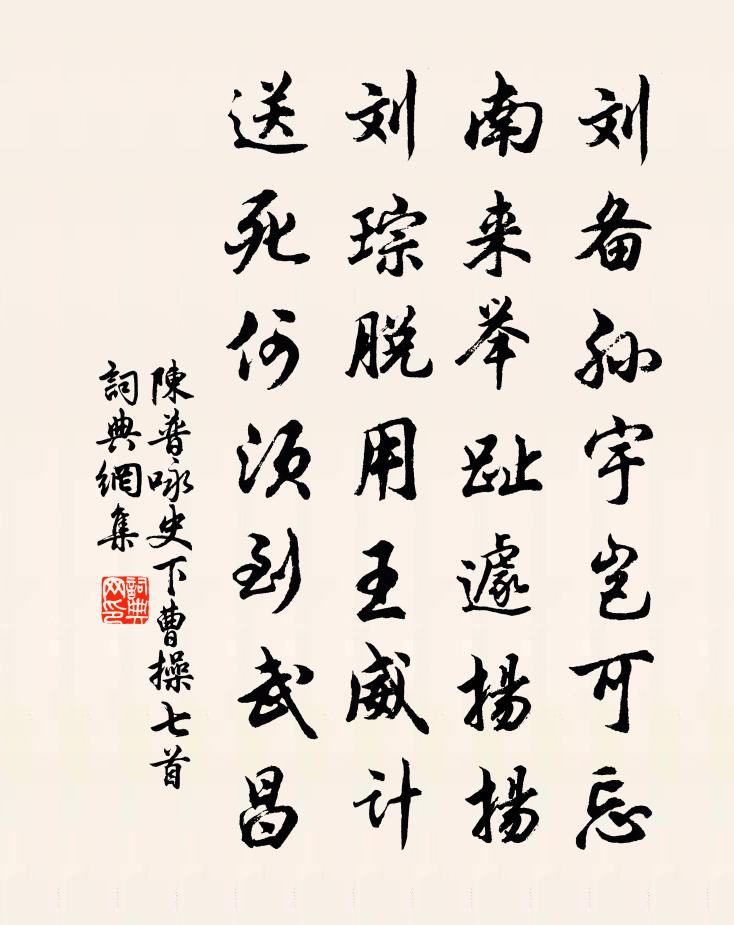 刘备孙宇岂可忘
南来举趾遽揚揚
刘琮脱用王威计
送死何须到武昌
陳普咏史下曹操七首
詞典網集
詞典网印